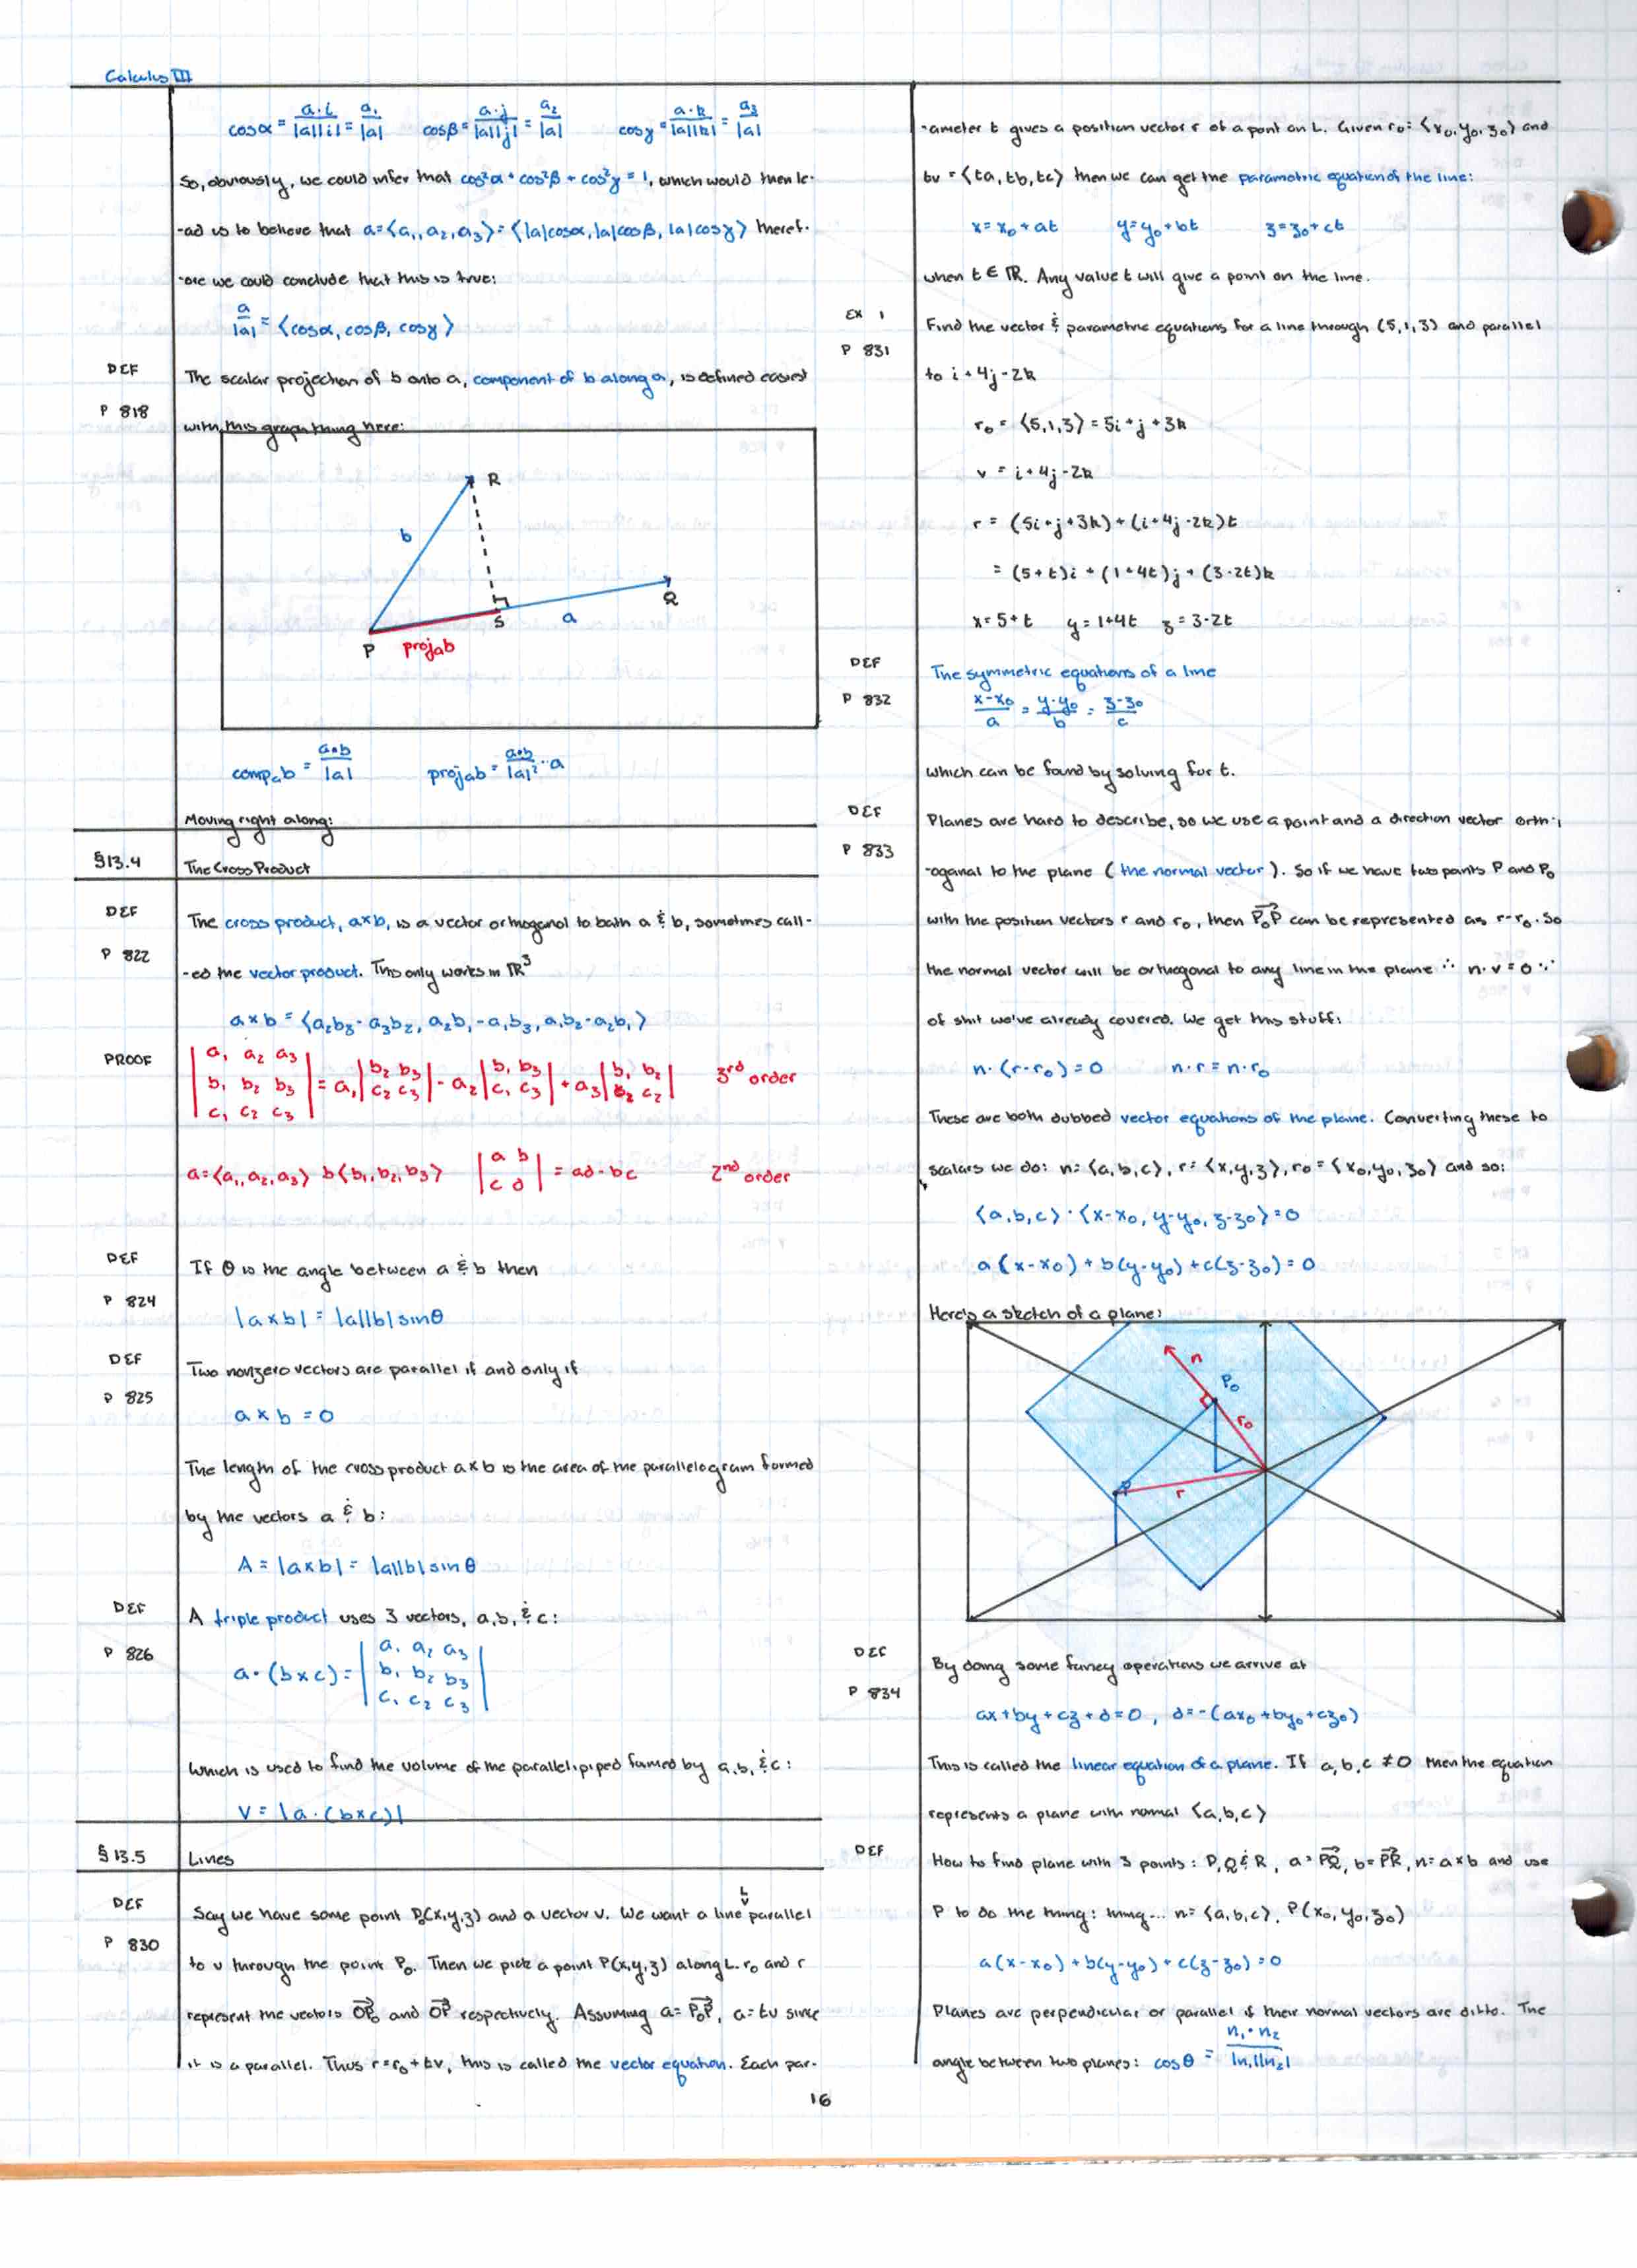 Calculus III
cosα = a·i/|a||i| = a₁/|a|   cosβ = a·j/|a||j| = a₂/|a|   cosγ = a·k/|a||k| = a₃/|a|
So, obviously, we could infer that cos²α + cos²β + cos²γ = 1, which would then le-
-ad us to believe that a = ⟨a₁, a₂, a₃⟩ = ⟨|a|cosα, |a|cosβ, |a|cosγ⟩ theref-
-ore we could conclude that this is true:
a/|a| = ⟨cosα, cosβ, cosγ⟩
DEF
P 818
The scalar projection of b onto a, component of b along a, is defined easiest
with this graph thing here:
R
b
Q
S
a
P
projab
compab = a•b/|a|   projab = a•b/|a|² · a
Moving right along:
§13.4 The Cross Product
DEF
P 822
The cross product, a×b, is a vector orthogonal to both a & b, sometimes call-
-ed the vector product. This only works in ℝ³
a×b = ⟨a₂b₃ - a₃b₂, a₂b₁ - a₁b₃, a₁b₂ - a₂b₁⟩
PROOF
|a₁ a₂ a₃|
|b₁ b₂ b₃| = a₁|b₂ b₃ / c₂ c₃| - a₂|b₁ b₃ / c₁ c₃| + a₃|b₁ b₂ / c₂| 3rd order
|c₁ c₂ c₃|
a=⟨a₁, a₂, a₃⟩ b⟨b₁, b₂, b₃⟩ |a b / c d| = ad - bc 2nd order
DEF
P 824
If θ is the angle between a & b then
|a×b| = |a||b|sinθ
DEF
P 825
Two nonzero vectors are parallel if and only if
a × b = 0
The length of the cross product a×b is the area of the parallelogram formed
by the vectors a & b:
A = |a×b| = |a||b|sinθ
DEF
P 826
A triple product uses 3 vectors, a, b, & c:
a·(b×c) = |a₁ a₂ a₃|
|b₁ b₂ b₃|
|c₁ c₂ c₃|
Which is used to find the volume of the parallelipiped formed by a, b, & c:
V = |a·(b×c)|
§13.5 Lines
DEF
P 830
Say we have some point P₀(x,y,z) and a vector v. We want a line L parallel
to v through the point P₀. Then we pick a point P(x,y,z) along L. r₀ and r
represent the vectors OP₀ and OP respectively. Assuming a = P₀P, a = tv since
it is a parallel. Thus r = r₀ + tv, this is called the vector equation. Each par-
-ameter t gives a position vector r of a point on L. Given r₀ = ⟨x₀, y₀, z₀⟩ and
tv = ⟨ta, tb, tc⟩ then we can get the parametric equation of the line:
x = x₀ + at   y = y₀ + bt   z = z₀ + ct
when t ∈ ℝ. Any value t will give a point on the line.
EX 1
P 831
Find the vector & parametric equations for a line through (5,1,3) and parallel
to i + 4j - 2k
r₀ = ⟨5,1,3⟩ = 5i + j + 3k
v = i + 4j - 2k
r = (5i + j + 3k) + (i + 4j - 2k)t
= (5+t)i + (1+4t)j + (3-2t)k
x = 5+t   y = 1+4t   z = 3-2t
DEF
P 832
The symmetric equations of a line
x-x₀/a = y-y₀/b = z-z₀/c
which can be found by solving for t.
DEF
P 833
Planes are hard to describe, so we use a point and a direction vector orth-
-oganal to the plane (the normal vector). So if we have two points P and P₀
with the position vectors r and r₀, then P₀P can be represented as r-r₀. So
the normal vector will be orthogonal to any line in the plane ∴ n·v = 0 ∵
of shit we've already covered. We get this stuff:
n·(r-r₀) = 0   n·r = n·r₀
These are both dubbed vector equations of the plane. Converting these to
scalars we do: n = ⟨a,b,c⟩, r = ⟨x,y,z⟩, r₀ = ⟨x₀,y₀,z₀⟩ and so:
⟨a,b,c⟩·⟨x-x₀, y-y₀, z-z₀⟩ = 0
a(x-x₀) + b(y-y₀) + c(z-z₀) = 0
Here's a sketch of a plane:
n
P₀
r₀
P
r
DEF
P 834
By doing some funcy operations we arrive at
ax + by + cz + d = 0, d = -(ax₀ + by₀ + cz₀)
This is called the linear equation of a plane. If a, b, c ≠ 0 then the equation
represents a plane with normal ⟨a,b,c⟩
DEF
How to find plane with 3 points: P, Q & R, a = PQ, b = PR, n = a×b and use
P to do the thing: thing... n = ⟨a,b,c⟩, P(x₀,y₀,z₀)
a(x-x₀) + b(y-y₀) + c(z-z₀) = 0
Planes are perpendicular or parallel if their normal vectors are ditto. The
angle between two planes: cosθ = n₁·n₂/|n₁||n₂|
16